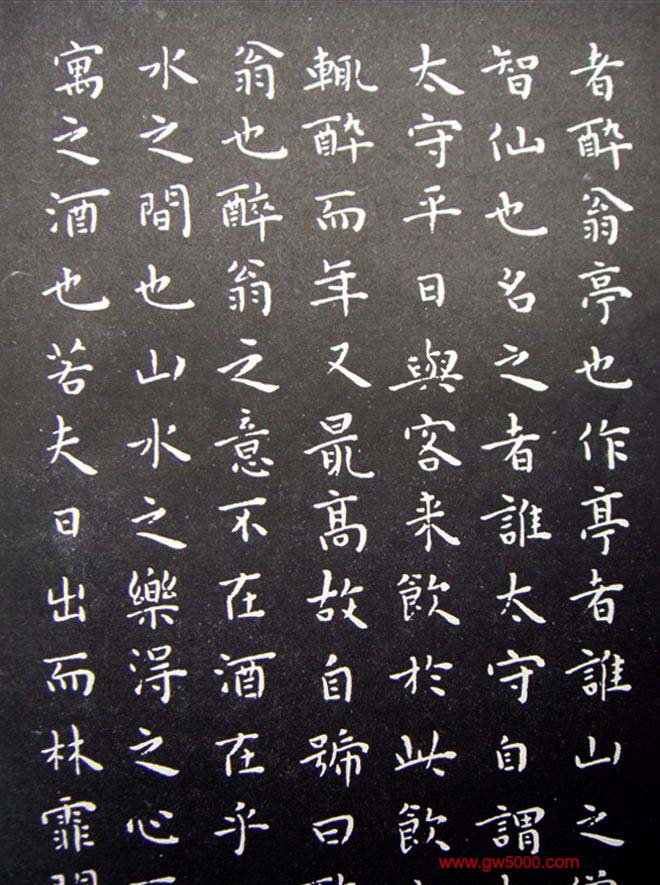 者酔翁亭也作亭者誰山之
智仙也名之者誰太守自謂
太守平日與客来飲於此飲
輒酔而年又最髙故自號曰
翁也醉翁之意不在酒在乎
水之間也山水之樂得之心
寓之酒也若夫日出而林霏
www.gw5000.com